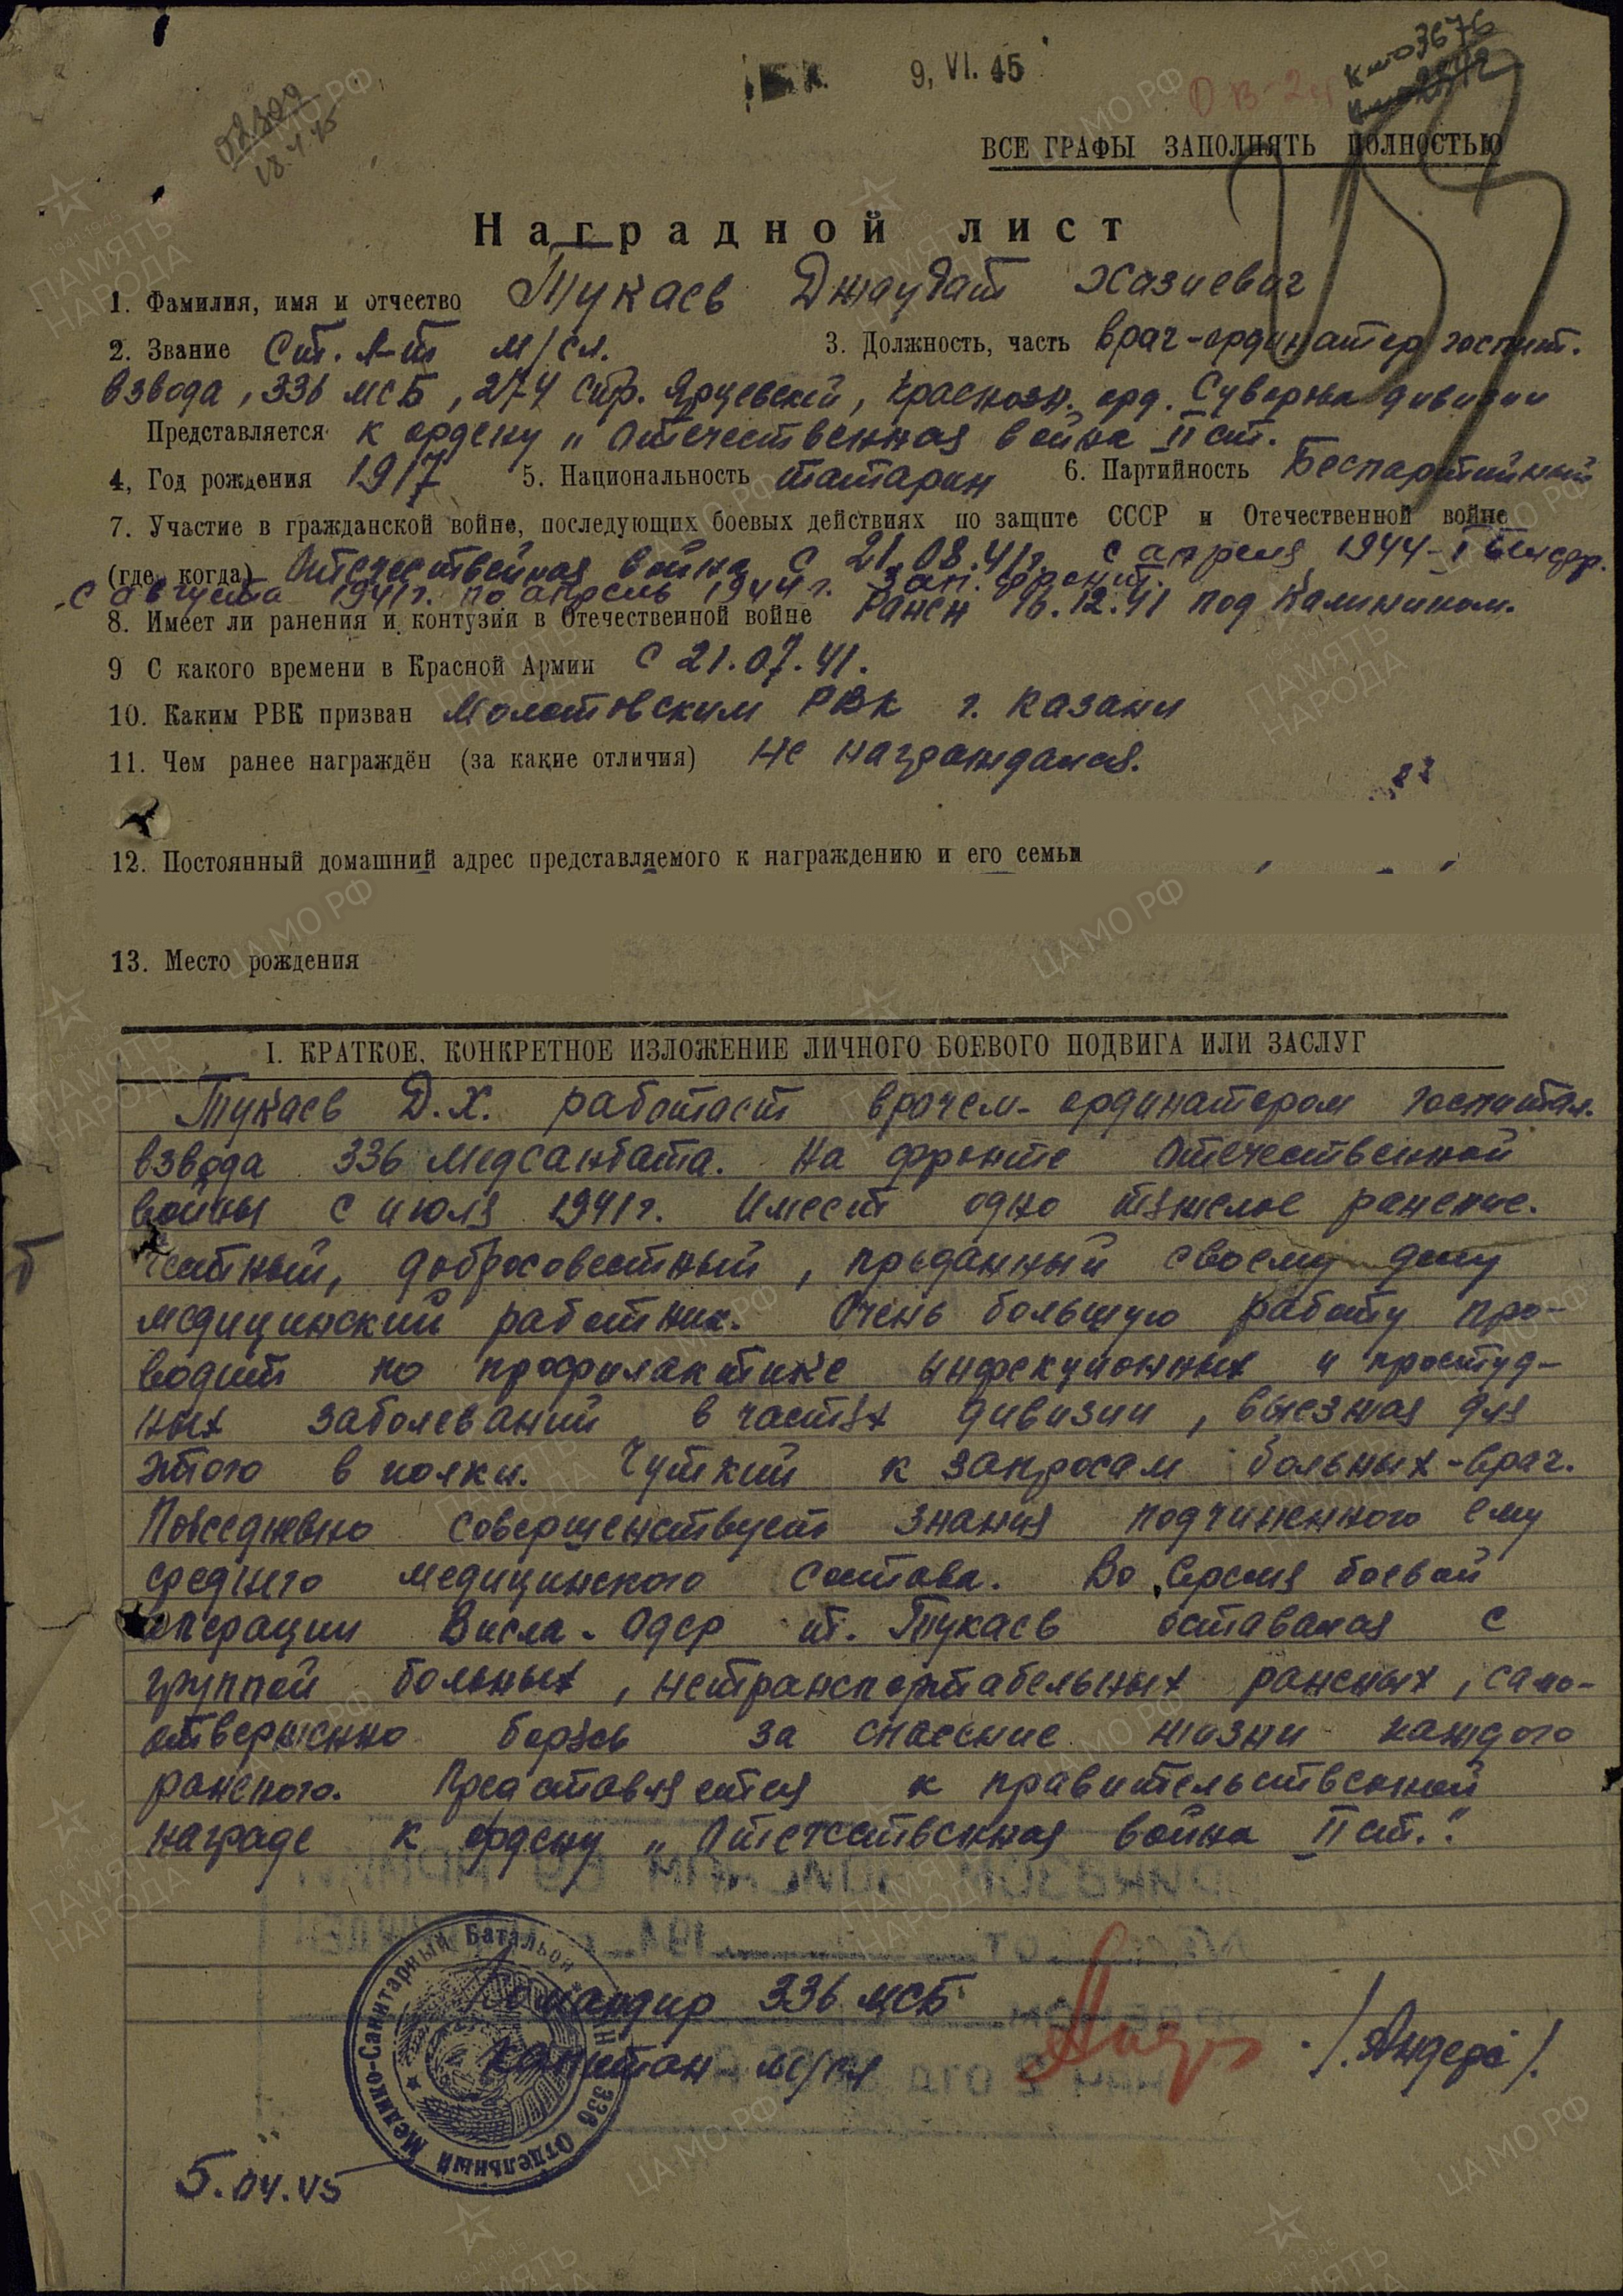 9, VI. 45
ВСЕ ГРАФЫ ЗАПОЛНЯТЬ ПОЛНОСТЬЮ
Наградной лист
1. Фамилия, имя и отчество Тукаев Джаудат Хазиевич
2. Звание Ст. л-т м/сл. 3. Должность, часть врач-ординатор госпит.
взвода, 336 мсБ, 274 стр. Ярцевской, Краснозн. орд. Суворова дивизии
Представляется к ордену „Отечественная война II ст.
4, Год рождения 1917 5. Национальность татарин 6. Партийность Беспартийный
7. Участие в гражданской войне, последующих боевых действиях по защите СССР и Отечественной войне
(где, когда) Отечественная война с 21.08.41г. с апреля 1944-I Белфр.
с августа 1941г. по апрель 1944г. Зап. фронт.
8. Имеет ли ранения и контузии в Отечественной войне Ранен 16.12.41 под Калинином.
9 С какого времени в Красной Армии с 21.07.41.
10. Каким РВК призван Молотовским РВК г. Казани
11. Чем ранее награждён (за какие отличия) не награждался.
12. Постоянный домашний адрес представляемого к награждению и его семьи
13. Место рождения
I. КРАТКОЕ, КОНКРЕТНОЕ ИЗЛОЖЕНИЕ ЛИЧНОГО БОЕВОГО ПОДВИГА ИЛИ ЗАСЛУГ
Тукаев Д.Х. работает врачем-ординатором госпитал.
взвода 336 медсанбата. На фронте Отечественной
войны с июля 1941г. Имеет одно тяжелое ранение.
Честный, добросовестный, преданный своему делу
медицинский работник. Очень большую работу про-
водит по профилактике инфекционных и простуд-
ных заболеваний в частях дивизии, выезжая для
этого в полки. Чуткий к запросам больных-врач.
Повседневно совершенствует знания подчиненного ему
среднего медицинского состава. Во время боевой
операции Висла-Одер т. Тукаев оставался с
группой больных, нетранспортабельных раненых, само-
отверженно борясь за спасение жизни каждого
раненого. Представляется к правительственной
награде к ордену „Отечественная война II ст."
Командир 336 мсБ
капитан м/сл /Андера/.
336 Отдельный Медико-Санитарный Батальон
5.04.45
ПАМЯТЬ НАРОДА
ЦА МО РФ